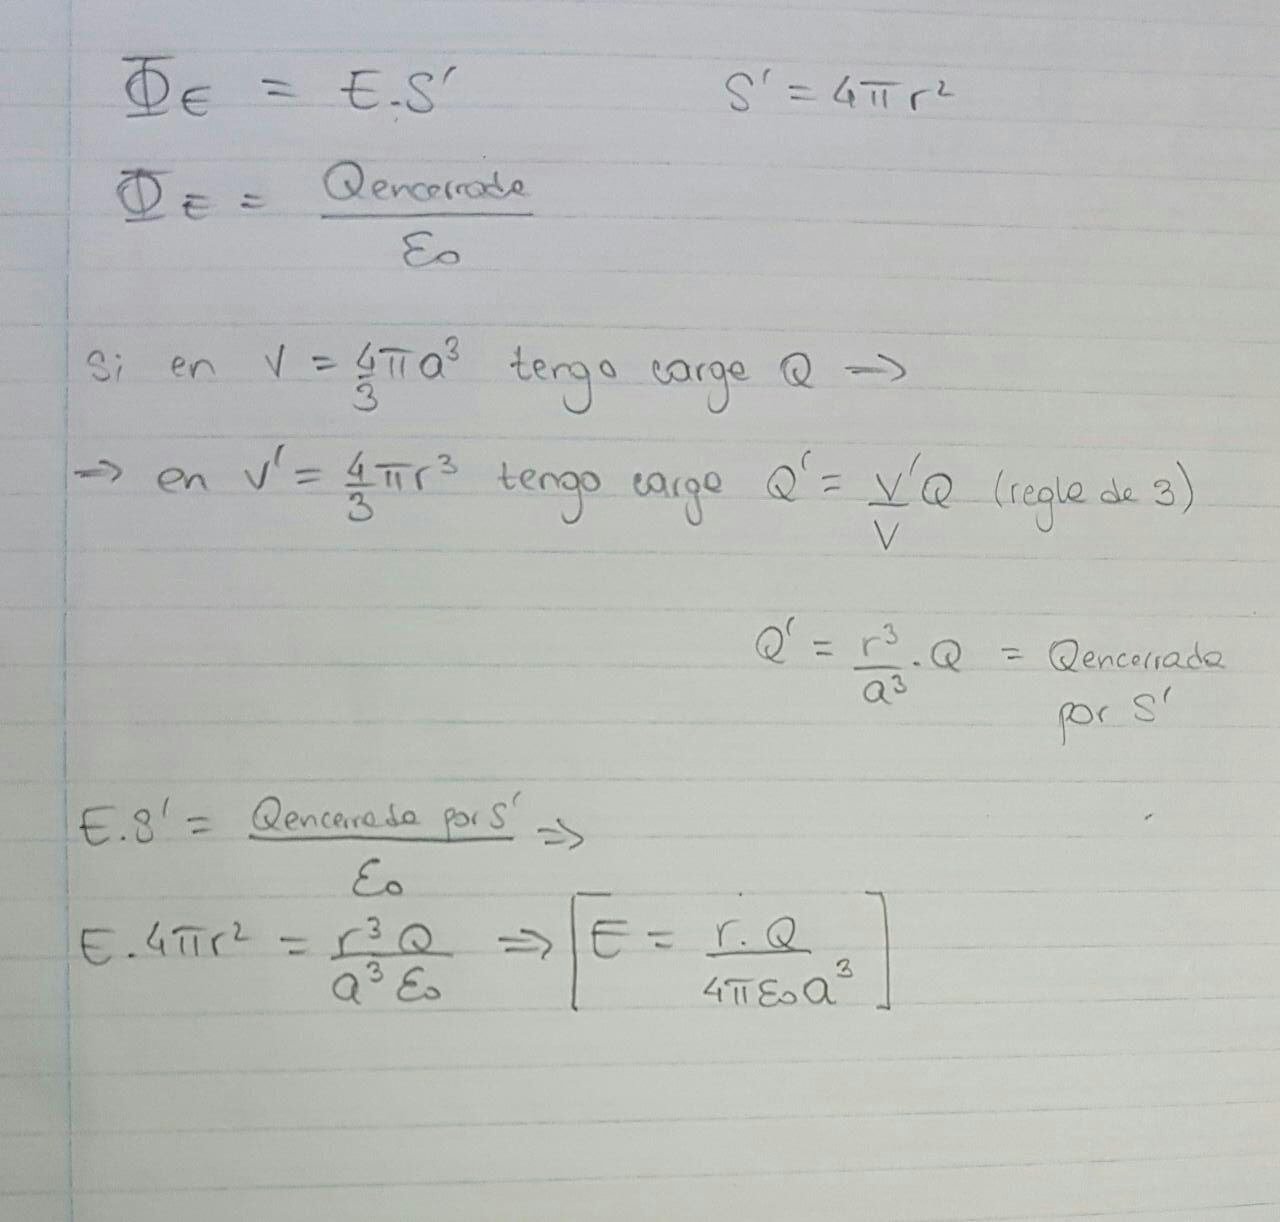 Φ_E = E.S' S' = 4πr²
Φ_E = Qencerrada / ε₀
Si en V = 4/3 πa³ tengo carga Q ⇒
⇒ en V' = 4/3 πr³ tengo carga Q' = V'/V Q (regla de 3)
Q' = r³/a³ . Q = Qencerrada
por S'
E.S' = Qencerrada por S' / ε₀ ⇒
E.4πr² = r³ Q / a³ ε₀ ⇒ [E = r.Q / 4πε₀a³]